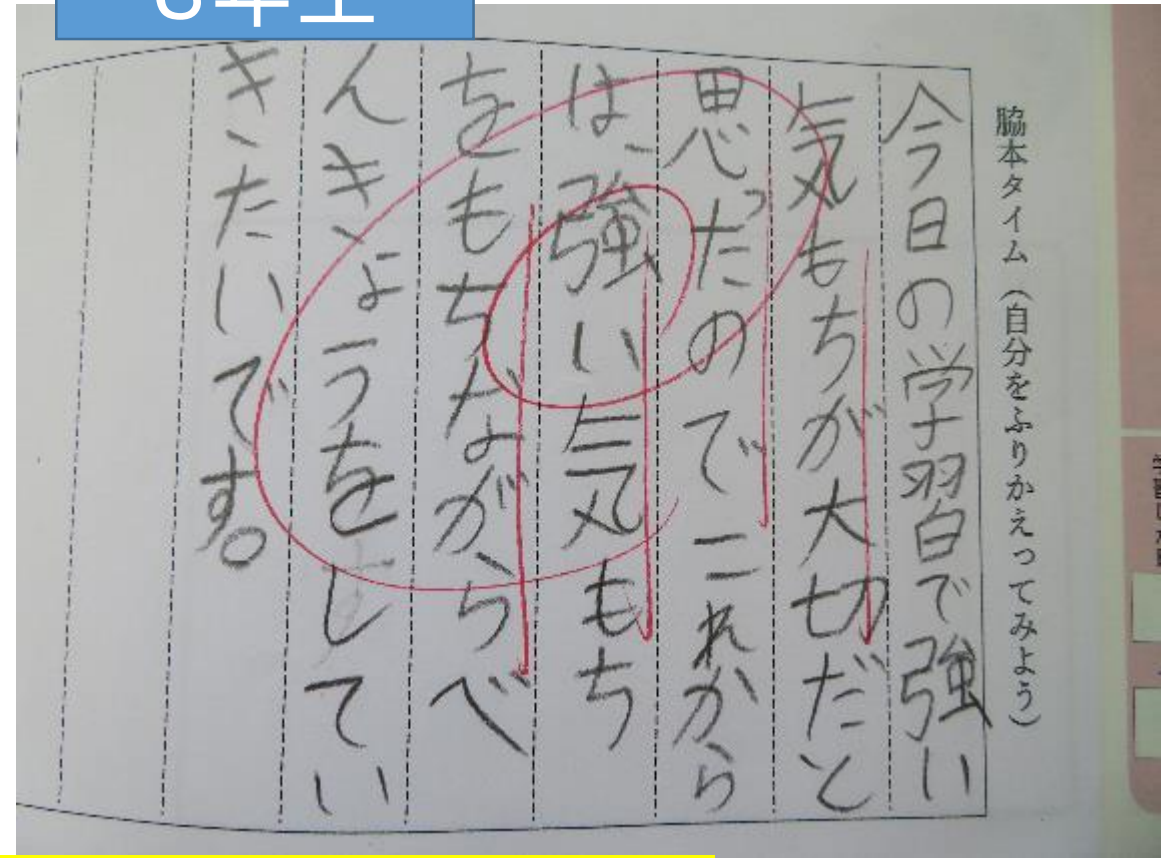 脇本タイム（自分をふりかえってみよう）
今日の学習で強い
気もちが大切だと
思ったのでこれから
は、強い気もち
をもちながらべ
んきょうをしてい
きたいです。